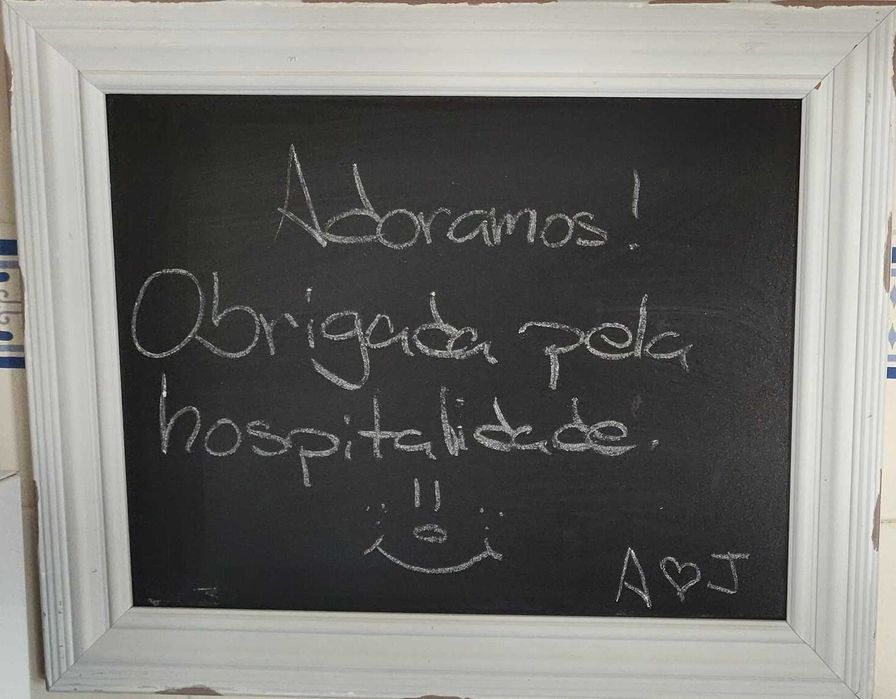 Adoramos!
Obrigada pela
hospitalidade.
A ♡ J